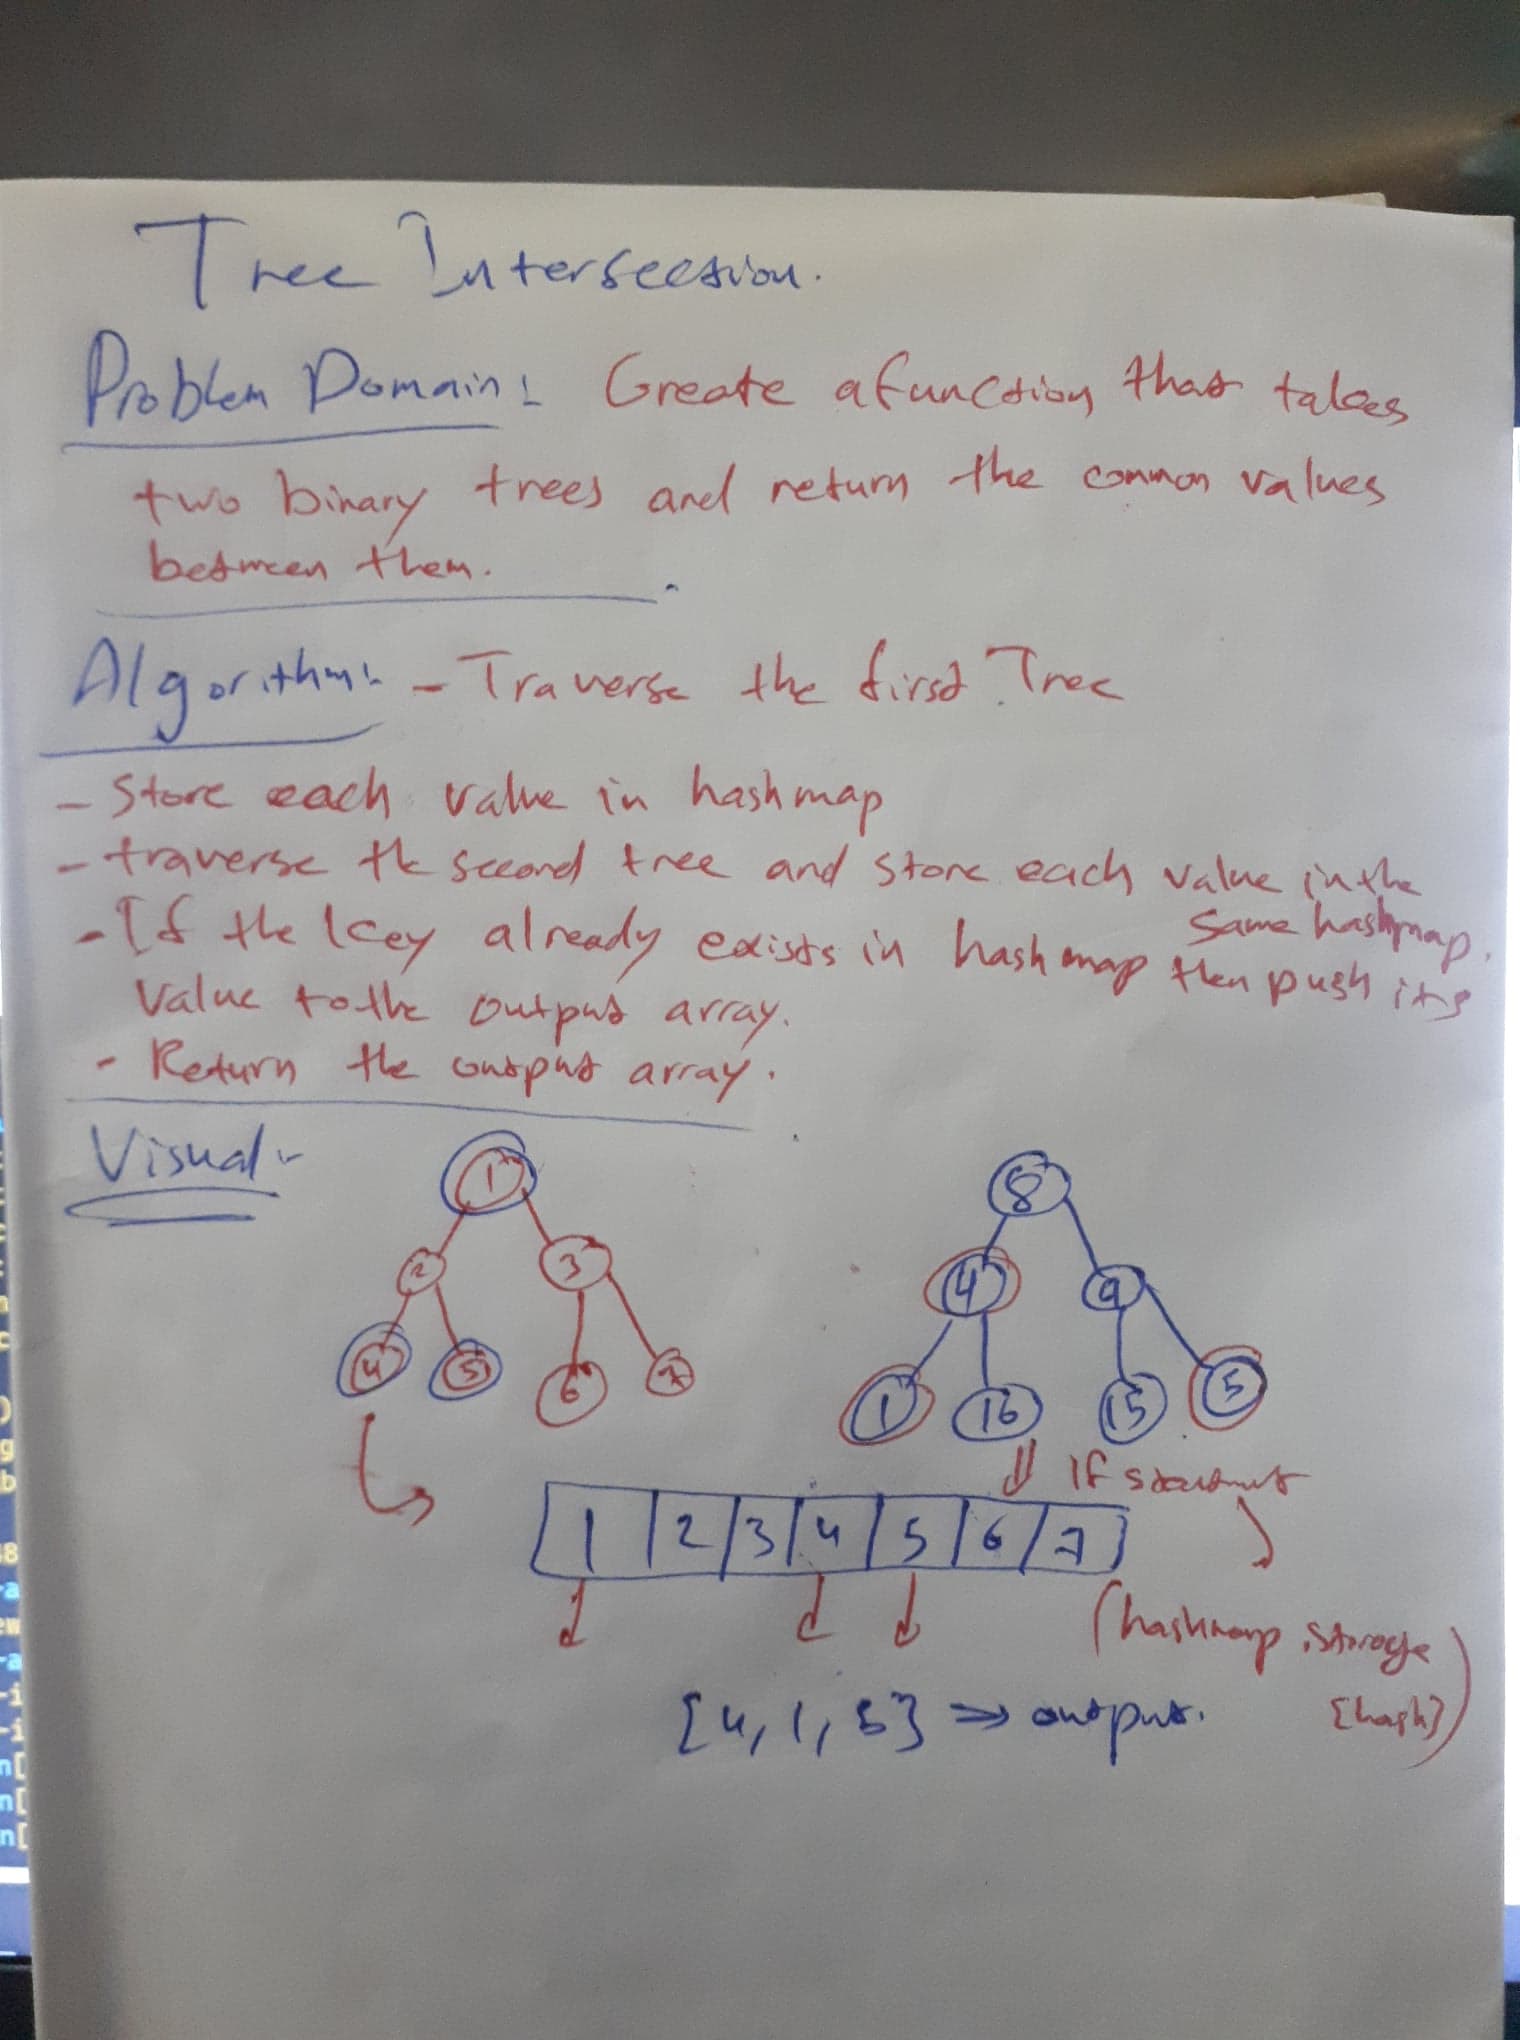 Tree Intersection.
Problem Domain: Create a function that takes
two binary trees and return the common values
between them.
Algorithm: - Traverse the first Tree
- Store each value in hashmap
- traverse the second tree and store each value in the
same hashmap.
- If the key already exists in hashmap then push its
value to the output array.
- Return the output array.
Visual:
1 8
2 3 4 9
4 5 6 7 1 16 15 5
If
1 2 3 4 5 6 7
(hashmap.storage
[hash])
[4, 1, 5] => output.